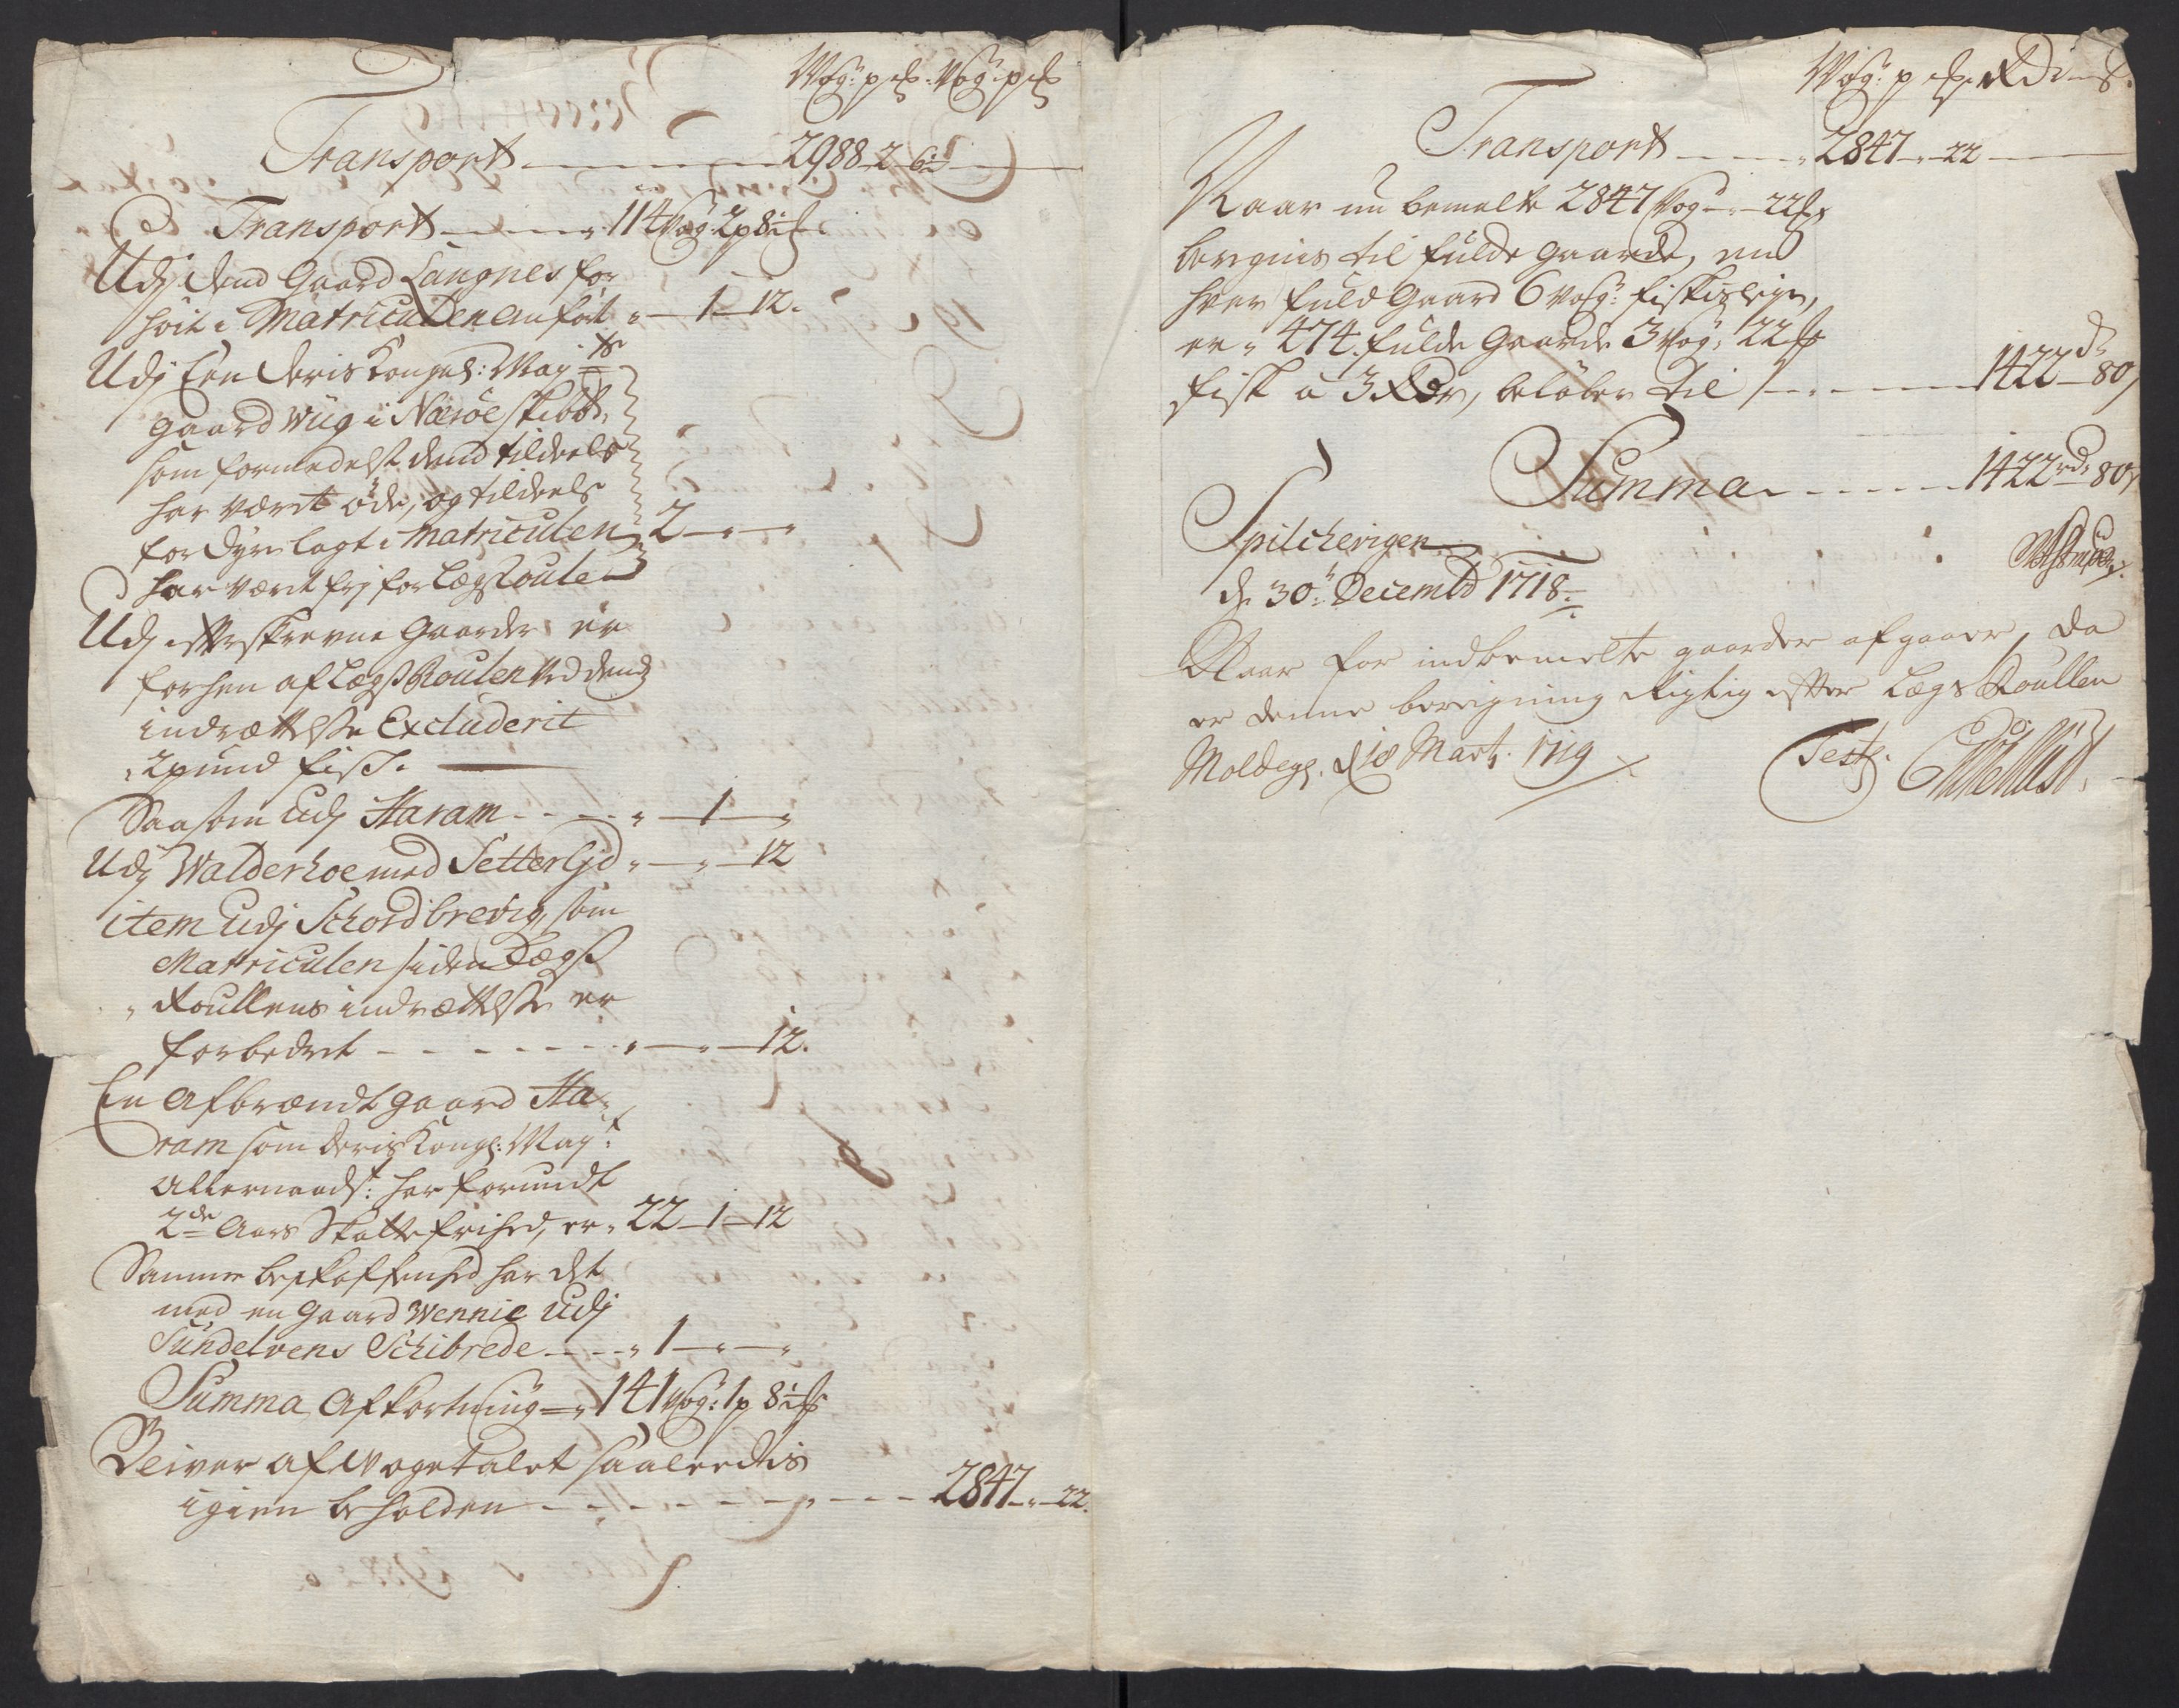 Wog: p ℔. Wog: p ℔
Transport 2988 2 6½
Transport 114 Wog 2 p 8½ ℔
Udj dend Gaard Langnes for
høit i Matriculen anført " 1 12.
Udj Een Deris Kongel: May:ts
gaard Wiig i Næröe skibbr.
som formedelst dend tildeels
har været øde, og tildeels
for dyre lagt i Matriculen 2 " "
har været frj for Lægs Roulen
Udj efterskrevne Gaarder er
forhen af Lægs Roulen ved dend
indrættelse Excluderit
2 pund fisk.
Saasom Udj Haram " 1 "
Udj Walderhoe med Setterljd " " 12
item Udj Schordbrevig, som
Matriculen siden Lægs
Roullens indrættelse er
forbedret " " 12.
En afbrændt gaard Ha-
ram som Deris Kongl: May:t
allernaadst: har forundt
2de Aars Skattefrihed, er 22 1 12
Samme beskaffenhed har det
med en Gaard Wennie Udj
Sundelvens Schibrede " 1 " "
Summa Afkortning 141 Wog: 1 p 8½ ℔
Bliver af Wogetalet saaledis
igien beholden 2847 " 22.
Wog: p ℔. Rd s.
Transport 2847 " 22
Naar nu bemelte 2847 Wog " 22 ℔
beregnis til fulde gaarde, en
hver fuld Gaard 6 Wog: fiskisleje,
er 474. fulde Gaarde 3 Wog: 22 ℔
fisk a 3 Rdr, beløber til 1422 dr 80
Summa 1422 rd 80
Spilchevigen
d. 30 Decembr 1718
Naar for indbemelte gaarder afgaaer, da
er denne beregning Rigtig efter Lægs Roullen
Moldegr. d 18 Marti 1719
Test.